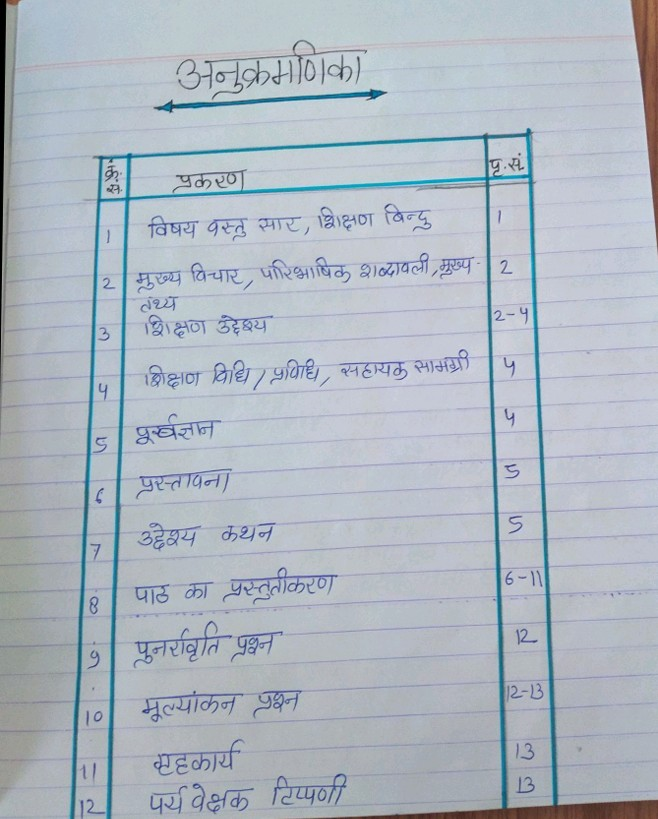 अनुक्रमणिका
क्र. सं. प्रकरण पृ. सं.
1 विषय वस्तु सार, शिक्षण बिन्दु 1
2 मुख्य विचार, पारिभाषिक शब्दावली, मुख्य- 2
तथ्य
3 शिक्षण उद्देश्य 2-4
4 शिक्षण विधि / प्रविधि, सहायक सामग्री 4
5 पूर्वज्ञान 4
6 प्रस्तावना 5
7 उद्देश्य कथन 5
8 पाठ का प्रस्तुतीकरण 6-11
9 पुनर्रावृति प्रश्न 12
10 मूल्यांकन प्रश्न 12-13
11 गृहकार्य 13
12 पर्यवेक्षक टिप्पणी 13